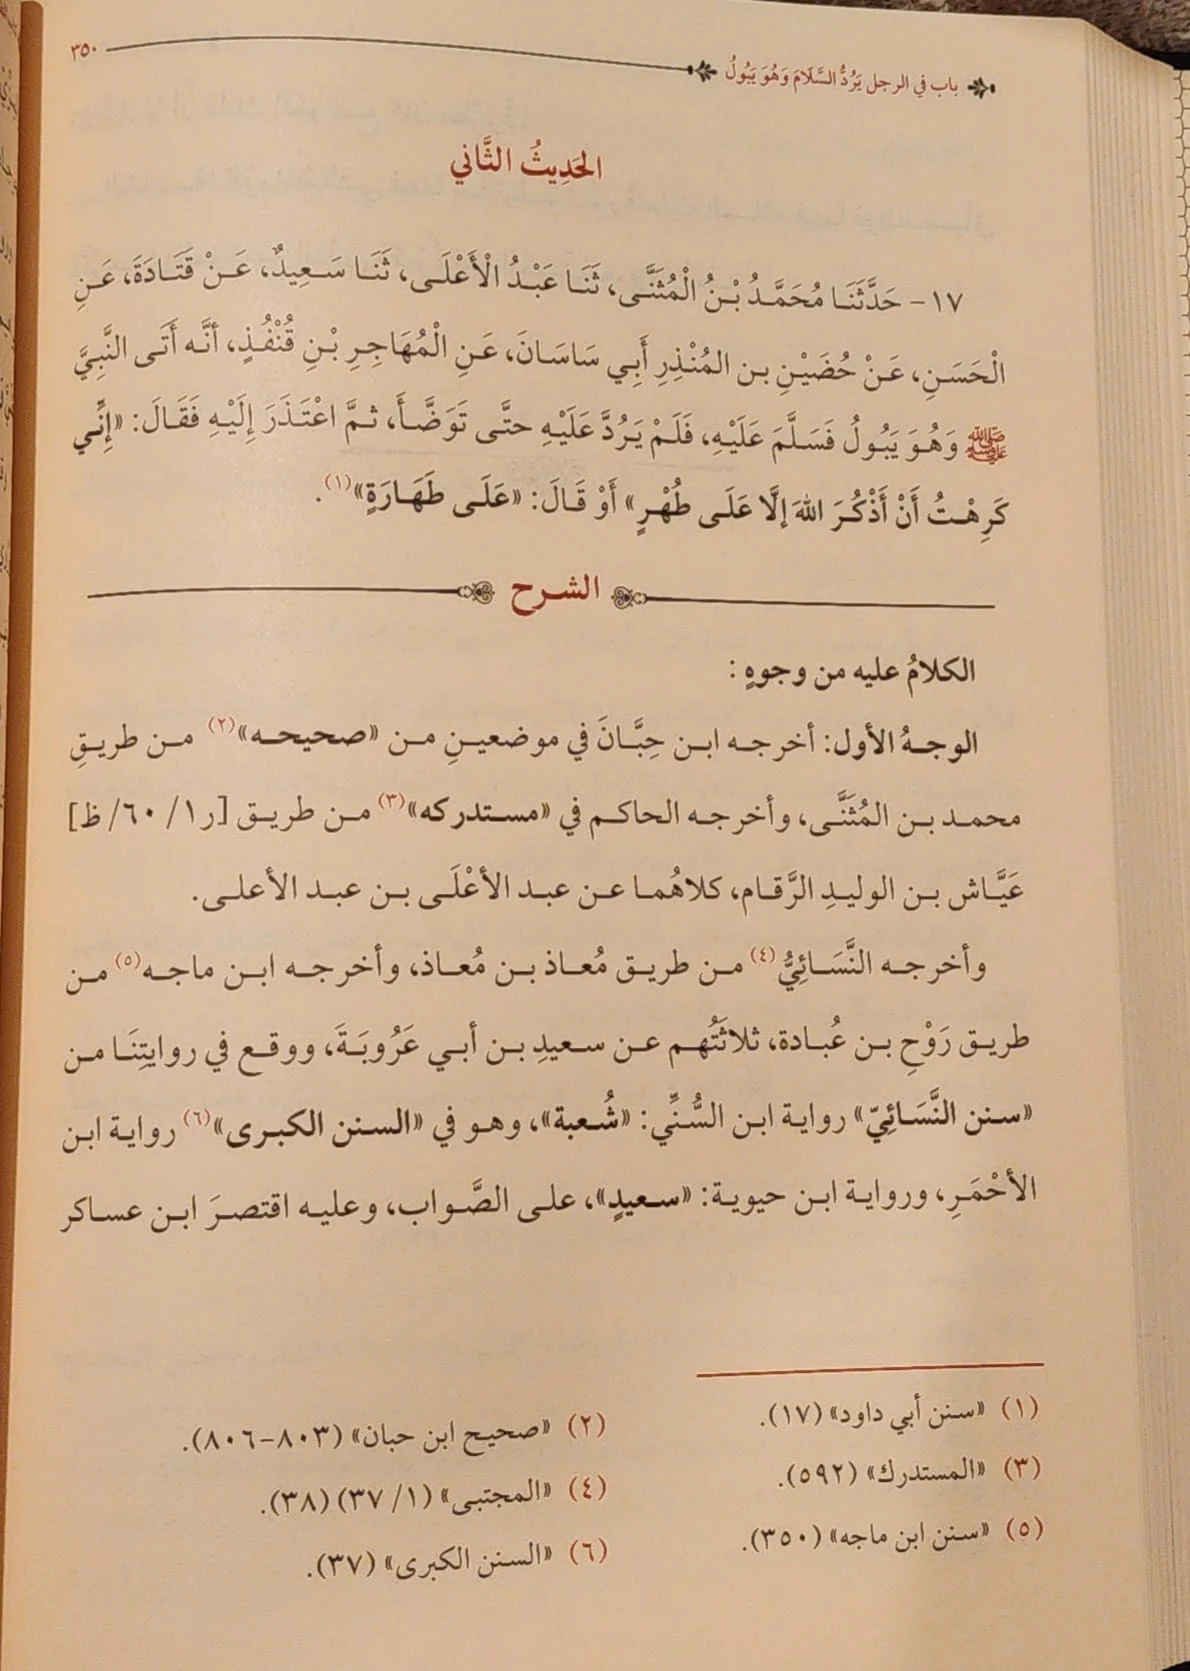 باب في الرجل يَرُدُّ السَّلَامَ وَهُوَ يَبُولُ
٣٥٠
الحَدِيثُ الثَّاني
١٧- حَدَّثَنَا مُحَمَّدُ بْنُ الْمُثَنَّى، ثَنَا عَبْدُ الْأَعْلَى، ثَنَا سَعِيدٌ، عَنْ قَتَادَةَ، عَنِ
الْحَسَنِ، عَنْ حُضَيْنِ بن المُنْذِرِ أَبِي سَاسَانَ، عَنِ الْمُهَاجِرِ بْنِ قُنْفُذٍ، أنَّه أَتَى النَّبِيَّ
ﷺ وَهُوَ يَبُولُ فَسَلَّمَ عَلَيْهِ، فَلَمْ يَرُدَّ عَلَيْهِ حتَّى تَوَضَّأَ، ثمَّ اعْتَذَرَ إِلَيْهِ فَقَالَ: «إِنِّي
كَرِهْتُ أَنْ أَذْكُرَ اللهَ إلَّا عَلَى طُهْرٍ» أَوْ قَالَ: «عَلَى طَهَارَةٍ»(١).
الشرح
الكلامُ عليه من وجوهٍ:
الوجهُ الأول: أخرجه ابن حِبَّانَ في موضعينِ من «صحيحه»(٢) من طريقِ
محمد بن المُثَنَّى، وأخرجه الحاكم في «مستدركه»(٣) من طريق [ر١/ ٦٠/ ظ]
عَيَّاش بن الوليدِ الرَّقام، كلاهُما عن عبد الأعْلَى بن عبد الأعلى.
وأخرجه النَّسَائِيُّ(٤) من طريق مُعاذ بن مُعاذ، وأخرجه ابن ماجه(٥) من
طريق رَوْحِ بن عُبادة، ثلاثَتُهم عن سعيدِ بن أبي عَرُوبَةَ، ووقع في روايتِنَا من
«سنن النَّسَائِيّ» رواية ابن السُّنِّي: «شُعبة»، وهو في «السنن الكبرى»(٦) رواية ابن
الأحْمَرِ، ورواية ابن حيوية: «سعيدٍ»، على الصَّواب، وعليه اقتصرَ ابن عساكر
(١) «سنن أبي داود» (١٧).
(٢) «صحيح ابن حبان» (٨٠٣-٨٠٦).
(٣) «المستدرك» (٥٩٢).
(٤) «المجتبى» (١/ ٣٧) (٣٨).
(٥) «سنن ابن ماجه» (٣٥٠).
(٦) «السنن الكبرى» (٣٧).